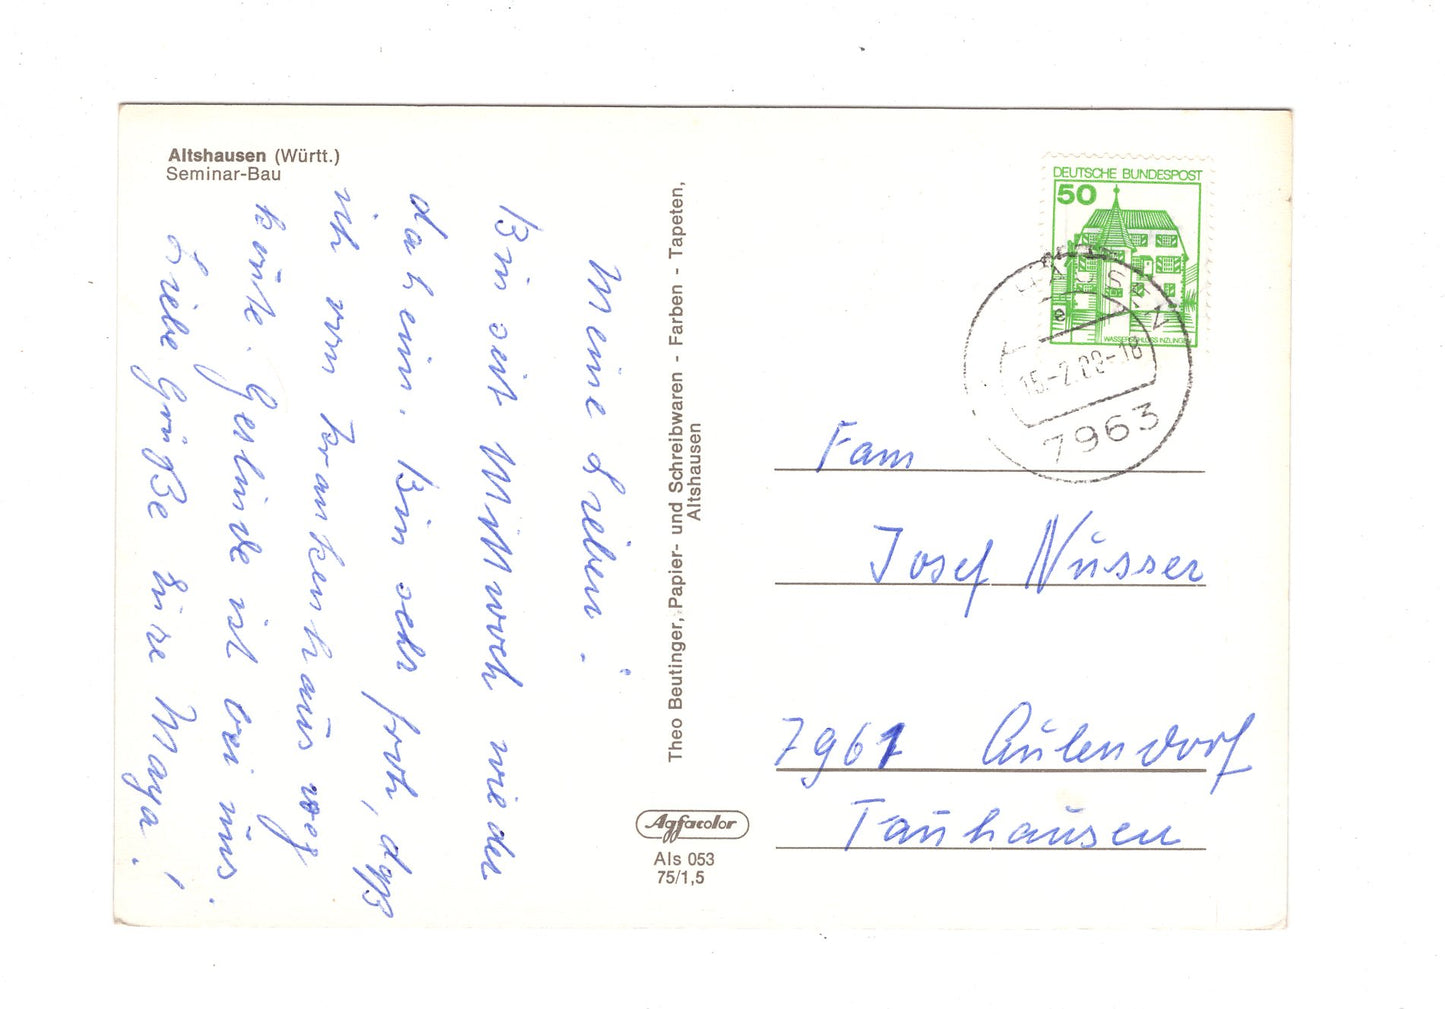 Altshausen (Württ.)
Seminar-Bau
Meine Lieben!
Bin seit Mittwoch wieder
daheim. Bin sehr froh, daß
ich vom Krankenhaus weg
konnte. Gerlinde ist bei uns.
Liebe Grüße Eure Maya!
Theo Beutinger, Papier- und Schreibwaren - Farben - Tapeten,
Altshausen
Agfacolor
Als 053
75/1,5
DEUTSCHE BUNDESPOST
50
WASSERSCHLOSS INZLINGEN
HAUSEN
e
15.-2.80-18
7963
Fam
Josef Nusser
7961 Aulendorf
Tannhausen